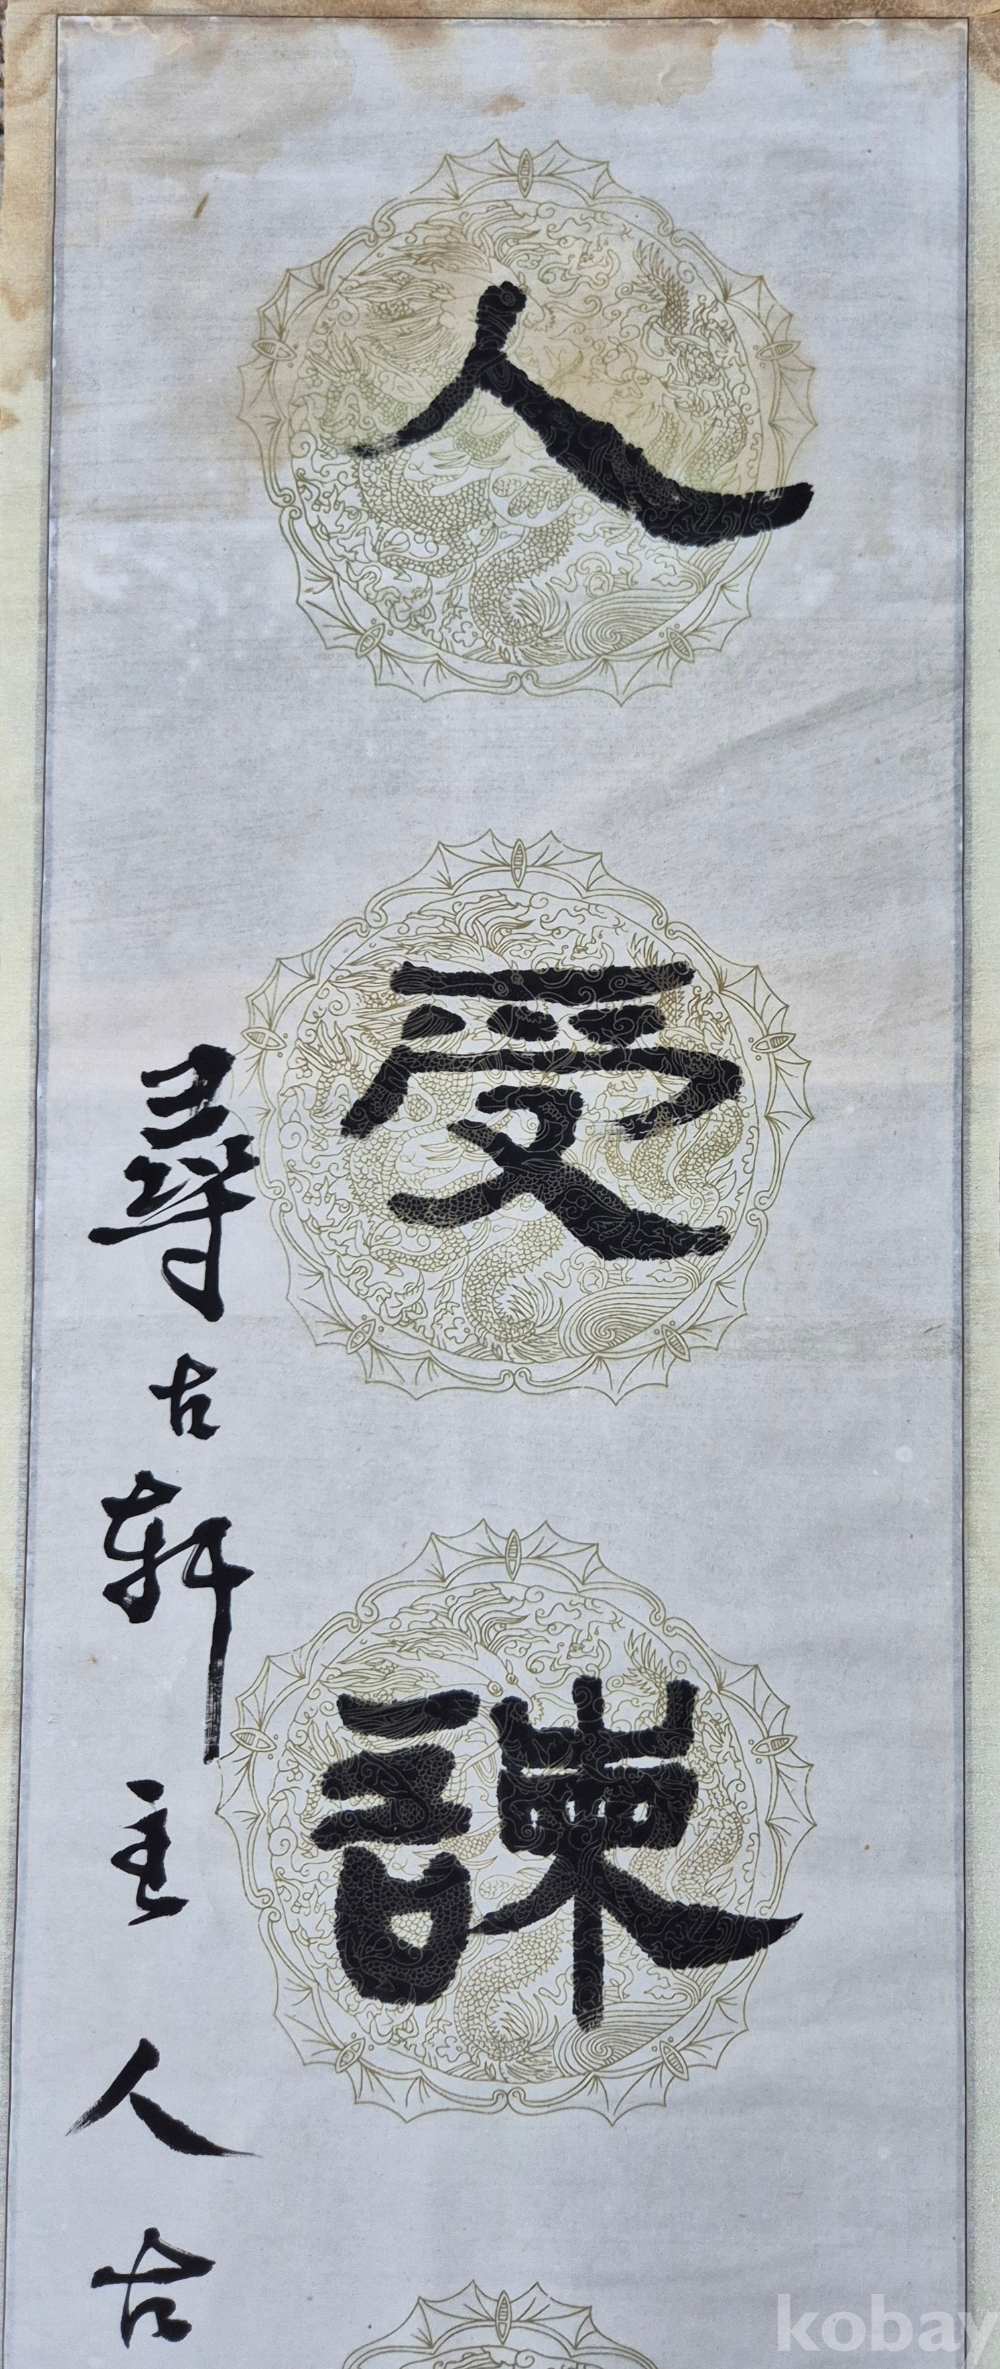 人受諫
尋古軒主人古
kobay